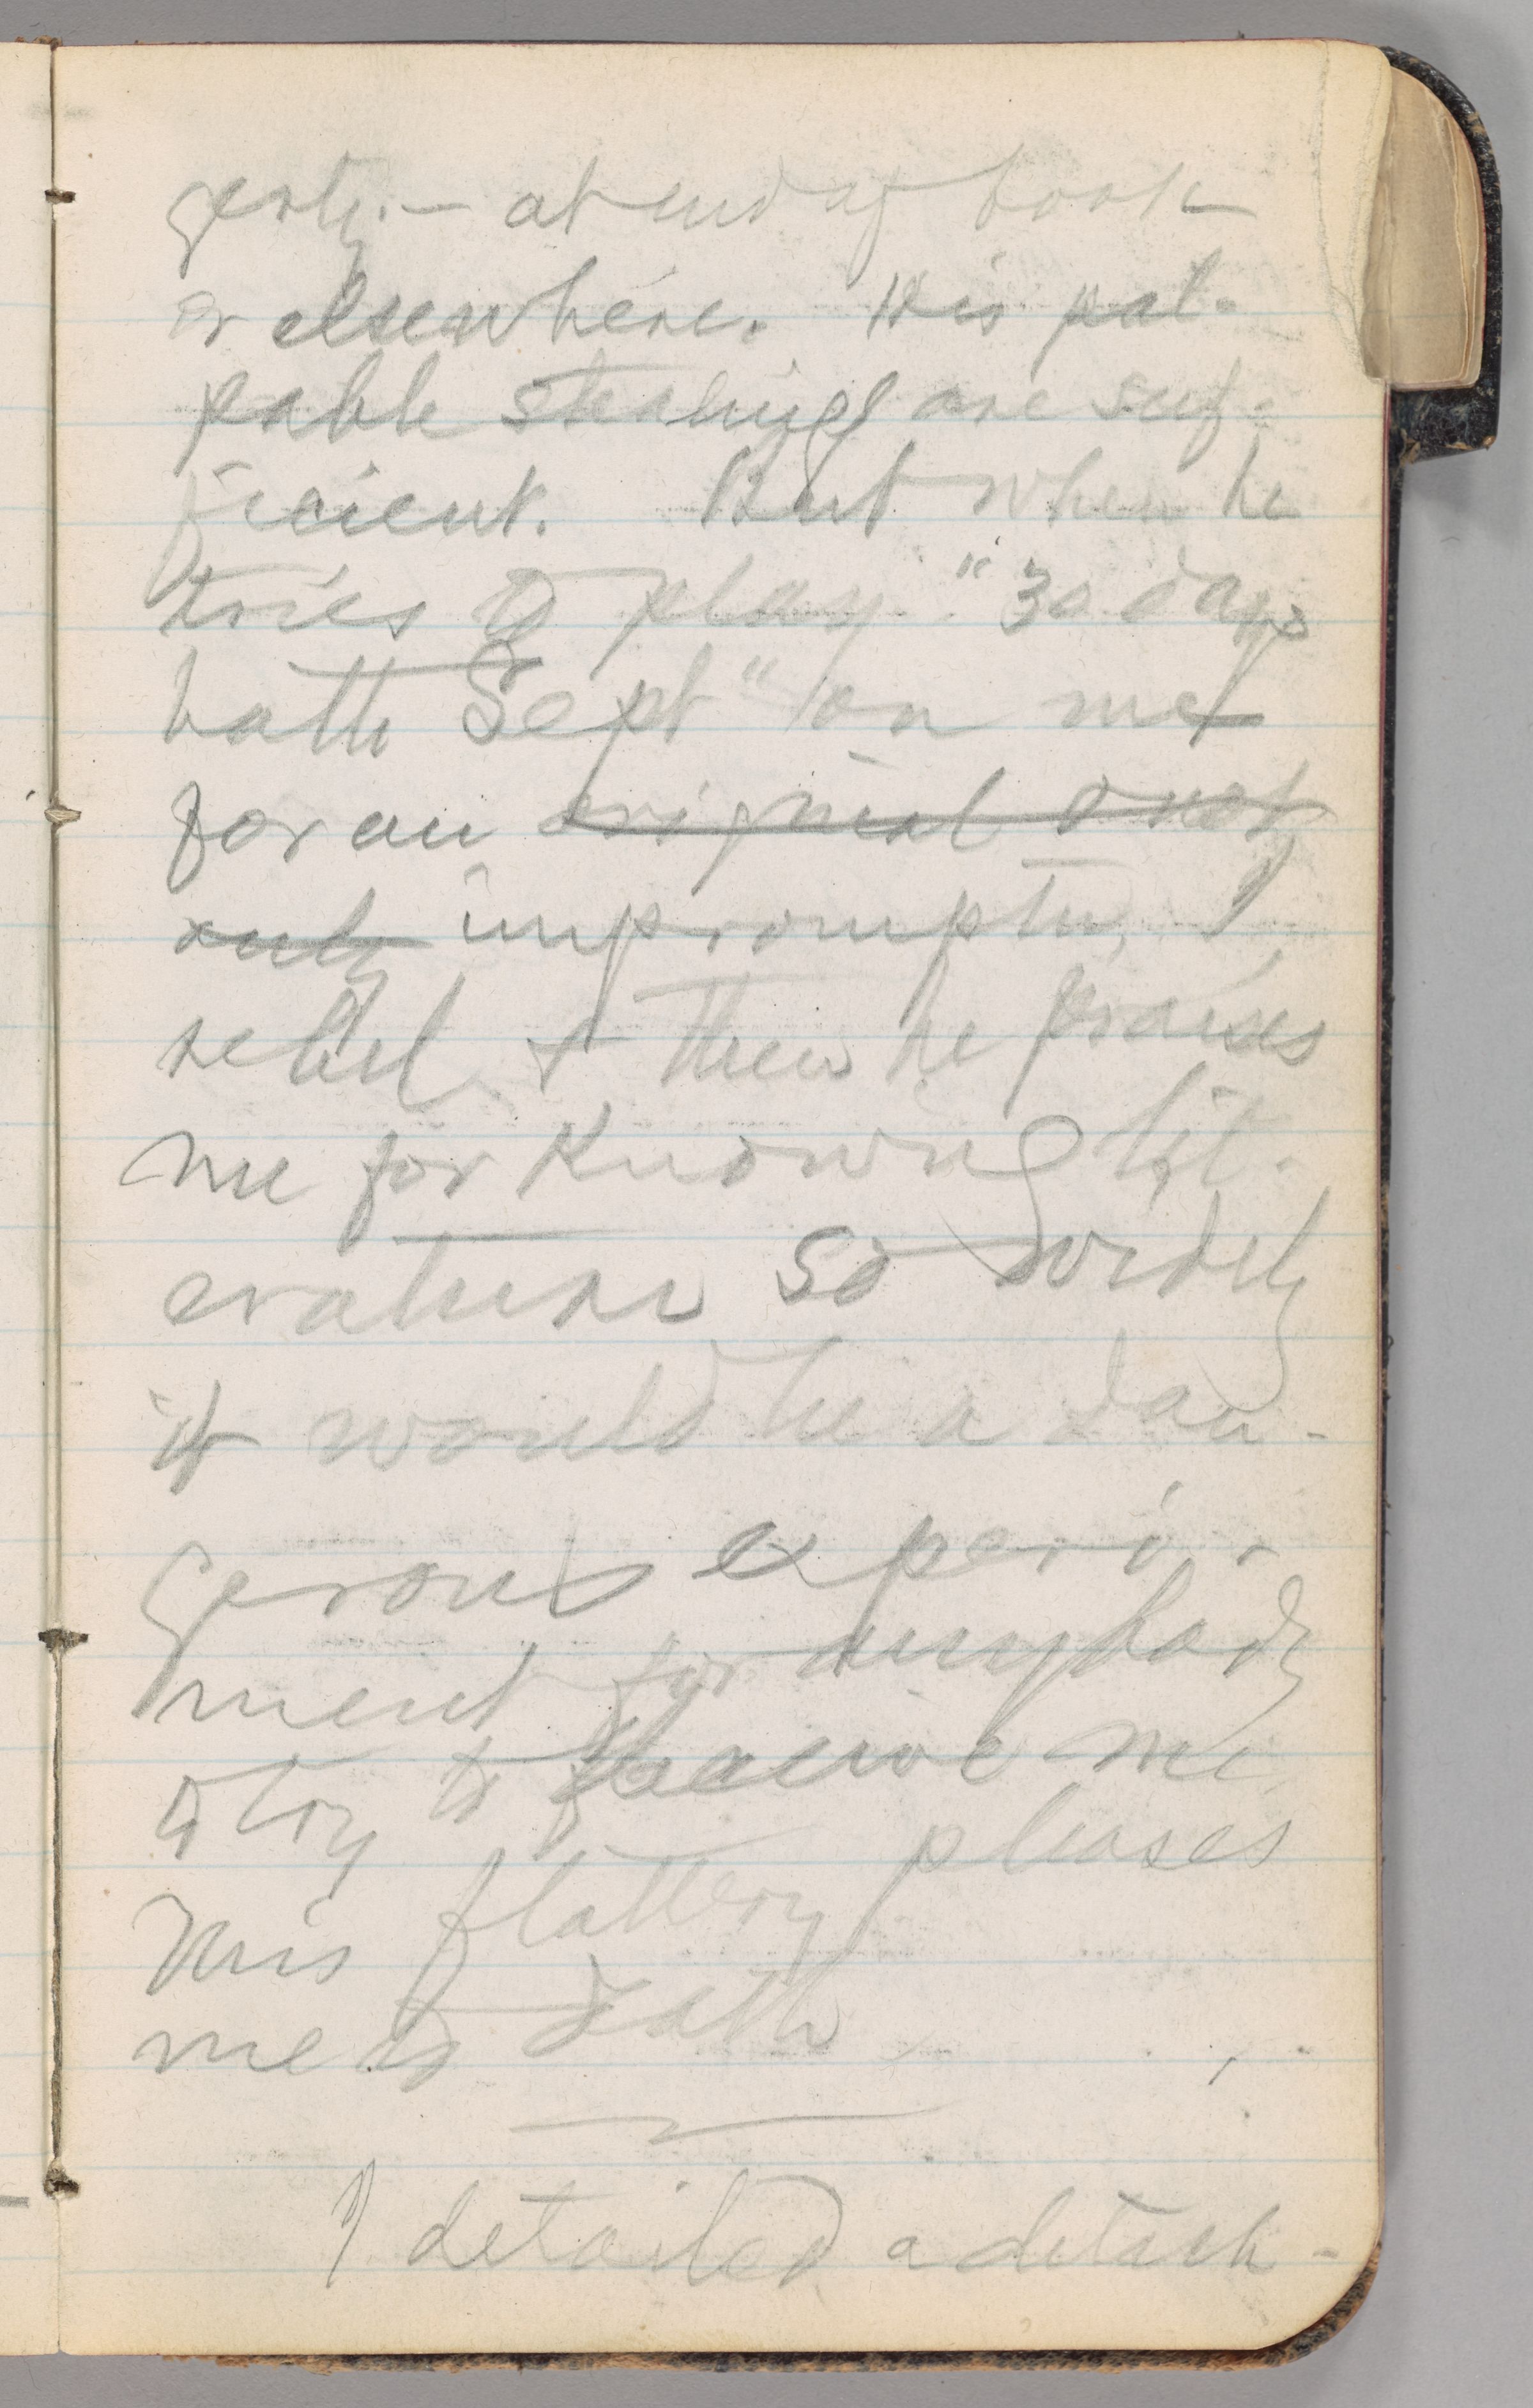 gesty.— at end of book
or elsewhere. His pal-
pable stealings are suf-
ficient. But when he
tries to play "30 days
hath Sept" on me
for an original
only impromptu, I
rebel, & then he praises
me for knowing lit-
erature so widely
it would be a dan-
gerous experi-
ment for anybody
to try to deceive me.
This flattery pleases
me to death
I detailed a detach-